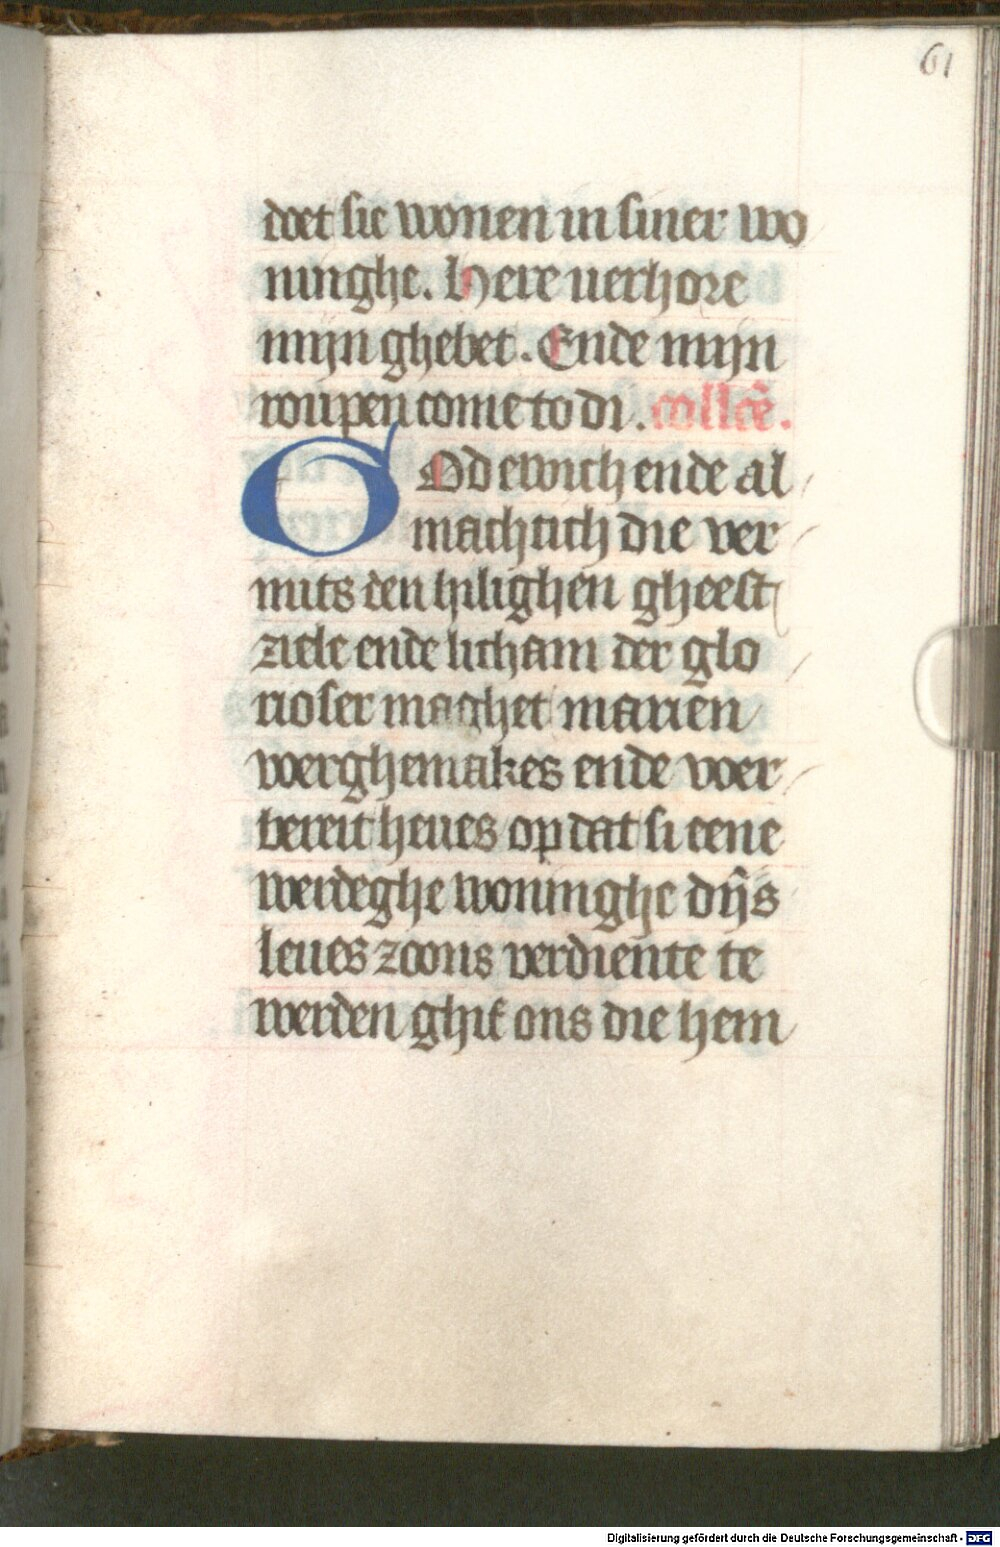 61
doet sie wonen in siner wo
ninghe. Here uerhore
mijn ghebet. Ende mijn
roupen come to di. collcē.
GOd ewich ende al
machtich die ver
mits den hilighen gheest
ziele ende licham der glo
rioser maghet marien
voerghemakes ende voer
bereit heues op dat si eene
werdeghe woninghe dijs
leues zoons verdiente te
werden ghif ons die hem
Digitalisierung gefördert durch die Deutsche Forschungsgemeinschaft - DFG